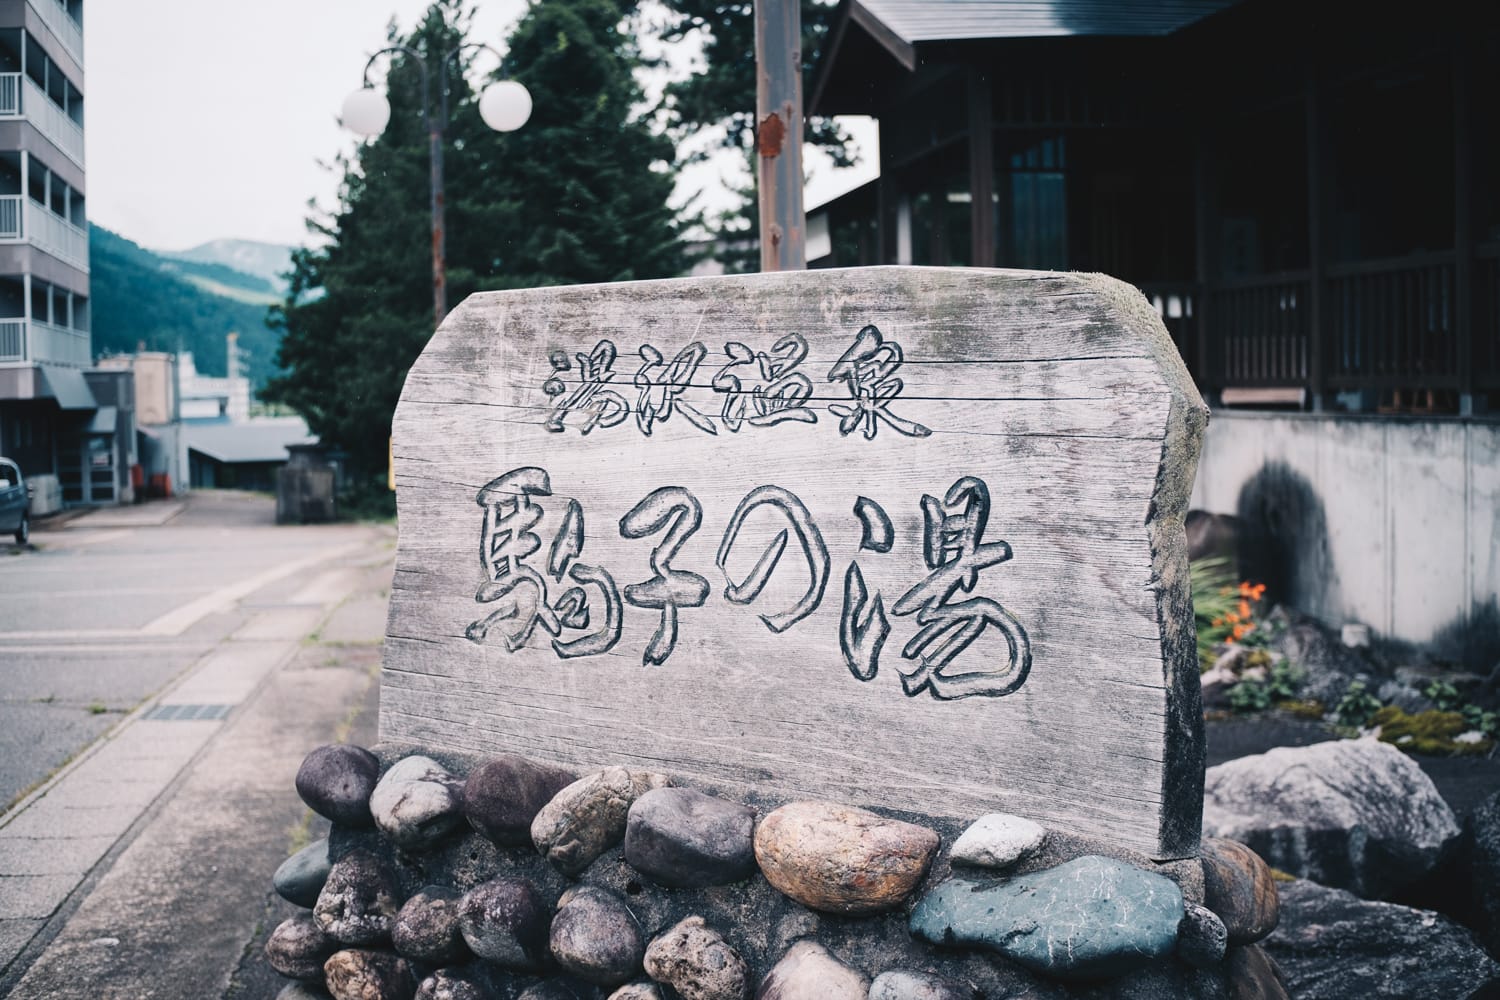 湯沢温泉
駒子の湯